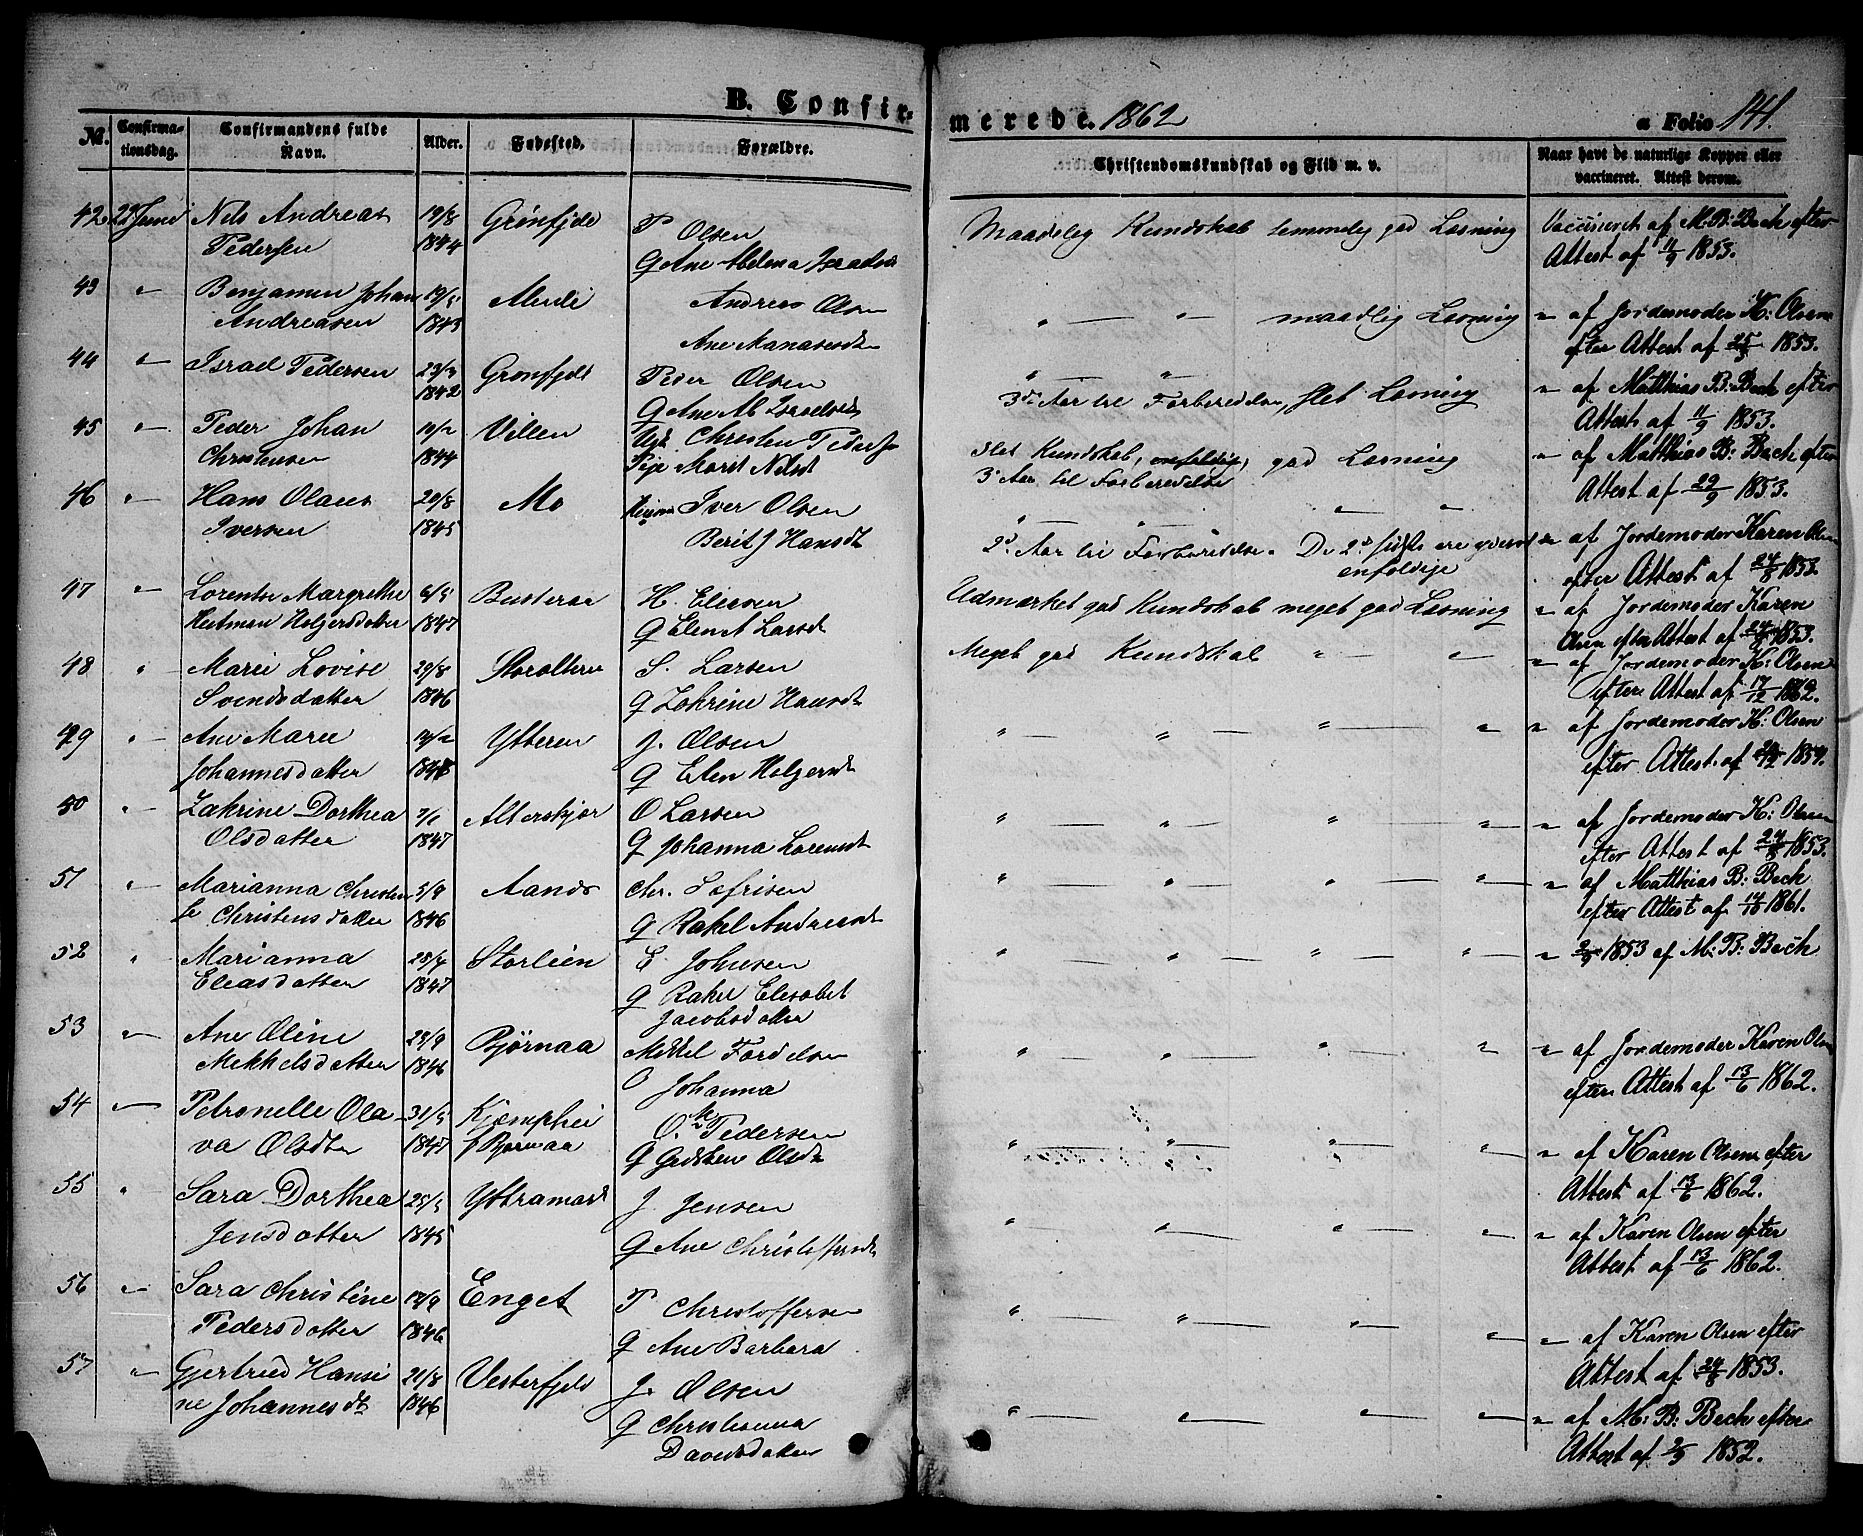 B. Confirmerede. 1862 a Folio 141.
No. Confirmationsdag. Confirmandens fulde Navn. Alder. Fødested. Forældre. Christendomskundskab og Flid m. v. Naar havt de naturlige Kopper eller vaccineret. Attest derom.
42. 22 Juni Nils Andreas 19/8 Grönfjeld P Olsen Maadelig Kundskab temmelig god Læsning Vaccineret af M. B: Bech efter
Pedersen 1844 G Ane Helena Attest af 11/9 1853.
43 " Benjamin Johan 19/5 Andreas Olsen " " maadlig Læsning " af Jordemoder K: Olsen
Andreasen 1843 Ane efter Attest af 25/8 1853.
44 " Israel Pedersen 23/3 Gronfjeld Peder Olsen " " " af Matthias B: Bech efter
1842 G Ane 3die Aar til Forberedelse, slet Læsning Attest af 11/9 1853.
45 " Peder Johan Villen Christen Peders slet Kundskab, enfoldig, god Læsning " af Matthias B: Bech efter
Christensen 1844 Pige Marit Nilsdt 3die Aar til Forberedelse Attest af 29/9 1853.
46 " Hans Olaus 20/8 Mo Iver Olsen " " " " " af Jordemoder Karen Olsen
Iversen 1845 Berit J Hansdt 2d Aar til Forberedelse. De 2de sidste ere efter Attest af 24/8 1853.
enfoldige
47 " Lorentse Margrethe 6/5 Busteraa H. Eliesen Udmærket god Kundskab meget god Læsning " af Jordemoder Karen
Heitman Holgersdatter 1847 G Elen A Larsdt Olsen efter Attest af 24/8 1853.
48 " Marei Lovise 29/8 Storalteren S. Larsen Meget god Kundskab " " " af Jordemoder K: Olsen
Svendsdatter 1846 G Zakrine Hansdt efter Attest af 17/12 1862.
49 " Ane Marie Ytteren J. Olsen " " " " " af Jordemoder K: Olsen
Johannesdatter G Elen Holgersdt efter Attest af 1854.
50 " Zakrine Dorthea 7/1 Alterskjær O Larsen " " " " " af Jordemoder K: Olsen
Olsdatter 1847 G Johanna Lorentsdt efter Attest af 24/8 1853.
51 " Marianna Christen 5/9 Aanes Chr. Zefrisen " " " " " af Matthias B: Bech
se Christensdatter 1846 G Rakel Andreasdt efter Attest af 14/10 1861.
52 " Marianna 28/4 Storlien E Johnsen " " " " " 2/9 1853 af M: B: Bech
Eleasdatter 1847 G Rakel Elesabet
Jacobsdatter
53 " Ane Oline 23/9 Bjørnaa Mekkel Fordelsen " " " " " af Jordemoder Karen Olsen
Mekkelsdatter 1846 Johanna efter Attest af 13/6 1862.
54 " Petronelle Ola 31/5 Kjæmphei O. Pedersen " " " " " af Karen Olsen efter
va Olsdtr 1847 Bjørnaa G Gidsken Olsdt Attest af 13/6 1862.
55 " Sara Dorthea 25/5 J. Jensen " " " " " af Karen Olsen efter
Jensdatter 1845 G Ane Christoffersdt Attest af 13/6 1862.
56 " Sara Christine Enget P Christoffersen " " " " " af Karen Olsen efter
Pedersdatter 1846 G Ane Barbara Attest af 24/8 1853.
57 " Gjertrud Hansi 21/8 Vesterfjeld J. Olsen " " " " " af M: B: Bech efter
ne Johannesdt 1846 G Christianna Attest af 2/9 1852.
Davidsdatter